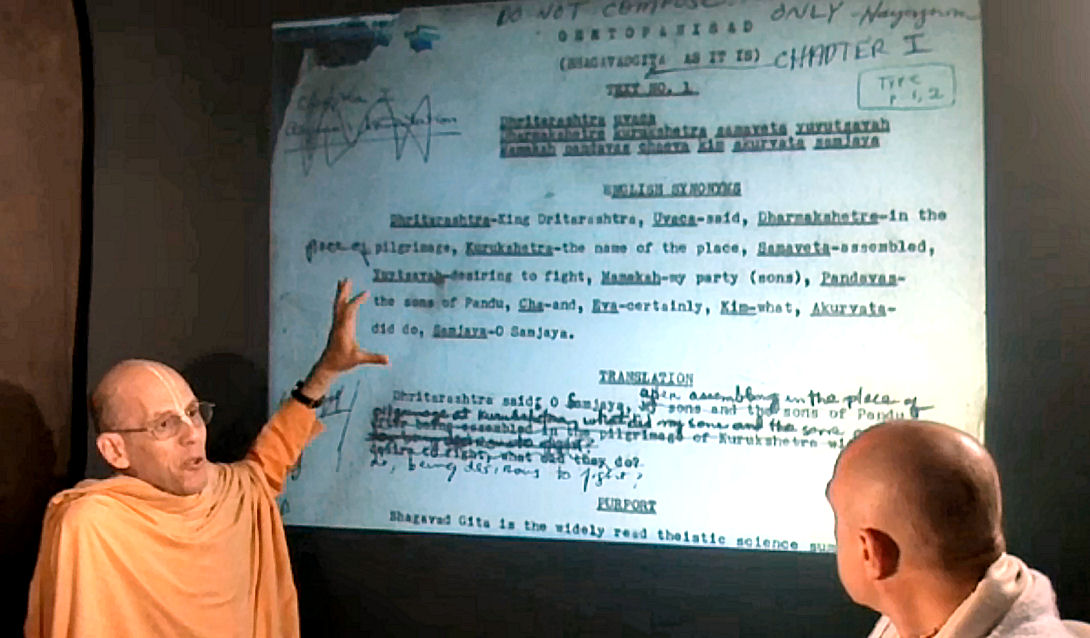 DO NOT COMPOSE ONLY - Nayayanna
GEETOPANISAD
(BHAGAVADGITA AS IT IS) CHAPTER I
TEXT NO. 1.
Type
p. 1, 2
Dhritarashtra uvaca
Dharmakshetre kurukshetra samaveta yuyutsavah
Mamakah pandavas chaeva kim akurvata samjaya
ENGLISH SYNONYMS
Dhritarashtra-King Dritarashtra, Uvaca-said, Dharmakshetre-in the
place of pilgrimage, Kurukshetra-the name of the place, Samaveta-assembled,
Yuzisavah-desiring to fight, Mamakah-my party (sons), Pandavas-
the sons of Pandu, Cha-and, Eva-certainly, Kim-what, Akurvata-
did do, Samjaya-O Samjaya.
TRANSLATION
after assembling in the place of
Dhritarashtra said; O Samjaya, my sons and the sons of Pandu
pilgrimage at Kurukshetra, what did my sons and the sons
after being assembled in the pilgrimage of Kurukshetra
desire to fight, what did they do?
do, being desirous to fight?
PURPORT
Bhagavad Gita is the widely read theistic science sum